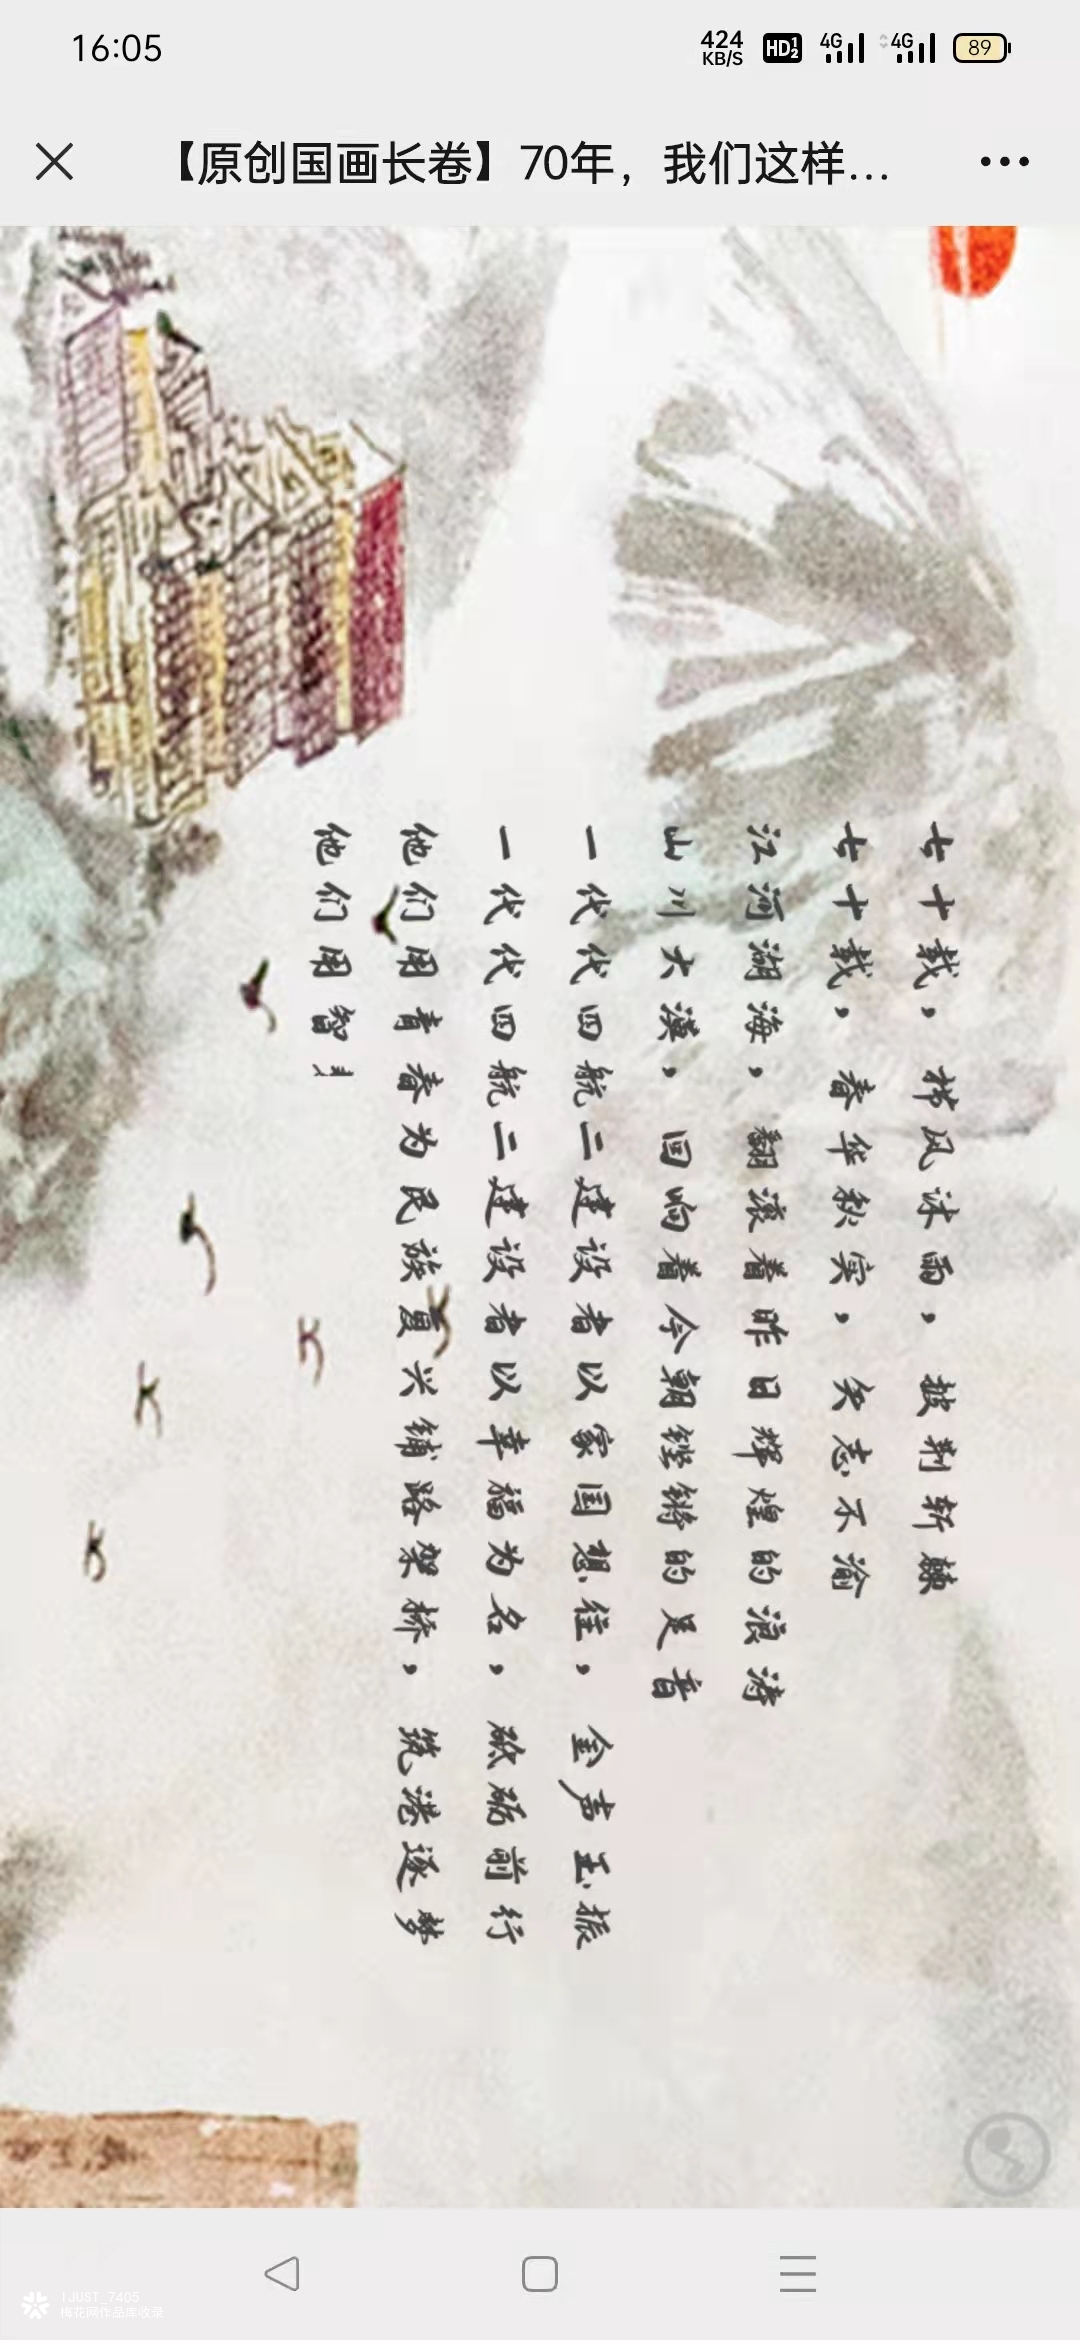 16:05
424
KB/S
HD
1
2
4G
4G
89
【原创国画长卷】70年，我们这样...
七十载，栉风沐雨，披荆斩棘
七十载，春华秋实，矢志不渝
江河湖海，翻滚着昨日辉煌的浪涛
山川大漠，回响着今朝铿锵的足音
一代代四航二建设者以家国想往，金声玉振
一代代四航二建设者以幸福为名，砥砺前行
他们用青春为民族复兴铺路架桥，筑港逐梦
他们用智
IJUST_7405
梅花网作品库收录